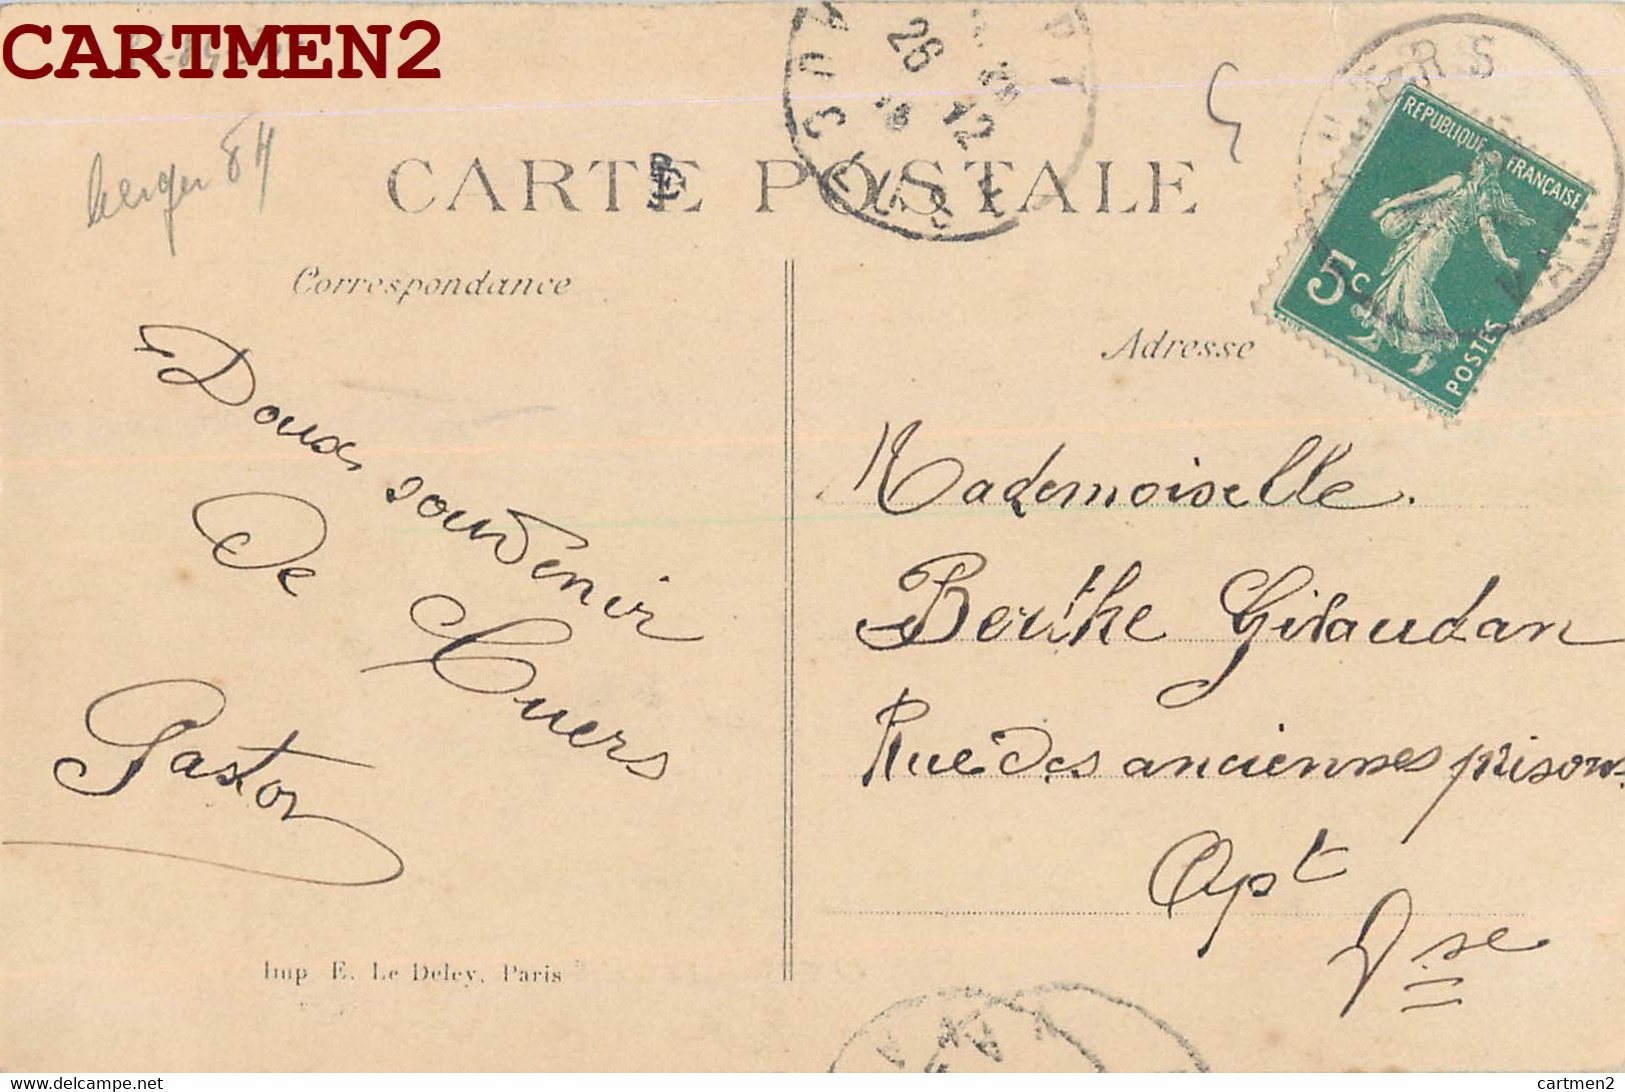 CARTMEN2
berger 84
CARTE POSTALE
Correspondance
Doux souvenir
De Cuers
Gaston
Imp E. Le Deley, Paris
Adresse
Mademoiselle.
Berthe Giraudan
Rue des anciennes prisons
Apt
Vse
REPUBLIQUE FRANÇAISE
5c
POSTES
CUERS
VAR
APT
VAUCLUSE
26
12
cartmen2